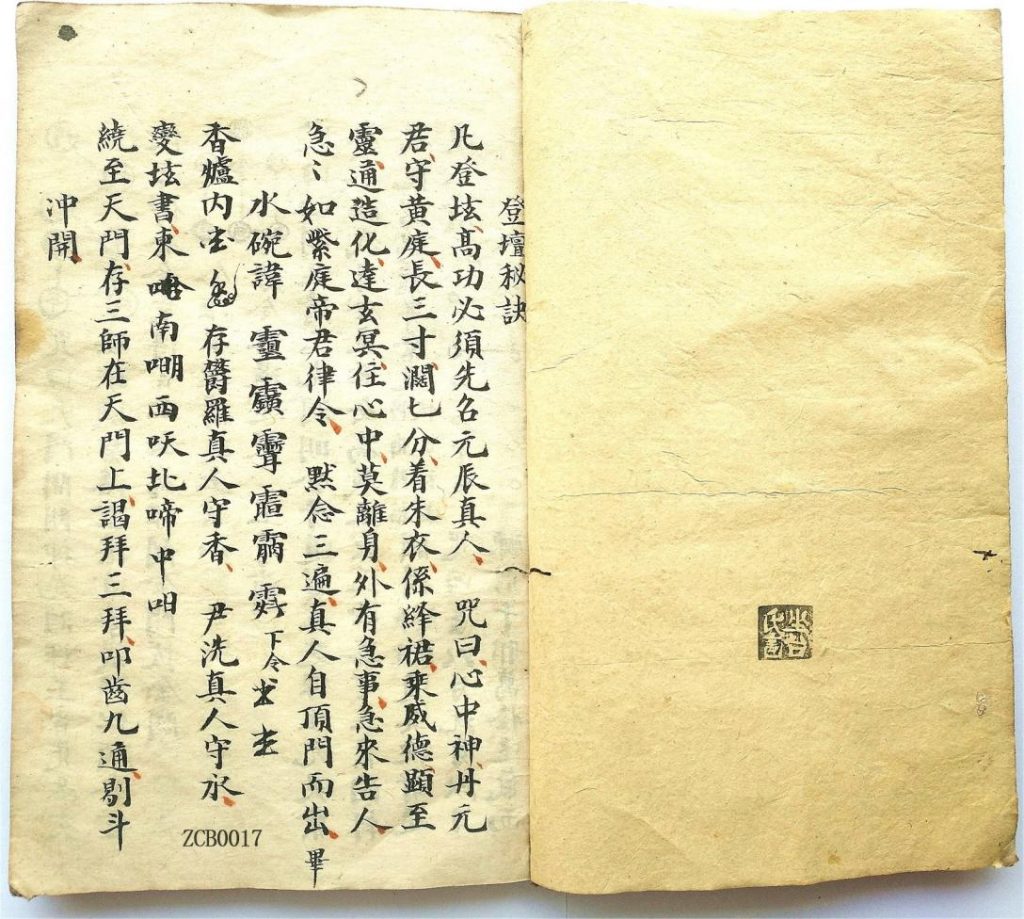 登壇秘訣
凡登坛、高功必須先召元辰真人、 咒曰、心中神、丹元
君、守黄庭、長三寸、濶七分、着朱衣、係絳裙、乘威德、顯至
靈、通造化、達玄冥、住心中、莫離身、外有急事、急來告人
急〻如紫庭帝君律令、 黙念三遍、真人自頂門而出、畢
水碗諱 下令
香爐内 存欝羅真人守香、 尹洗真人守水、
變坛書、東 南嘲西㕭北啼中呾
繞至天門、存三師在天門上、謁拜三拜、叩齒九通、剔斗
冲開、
ZCB0017